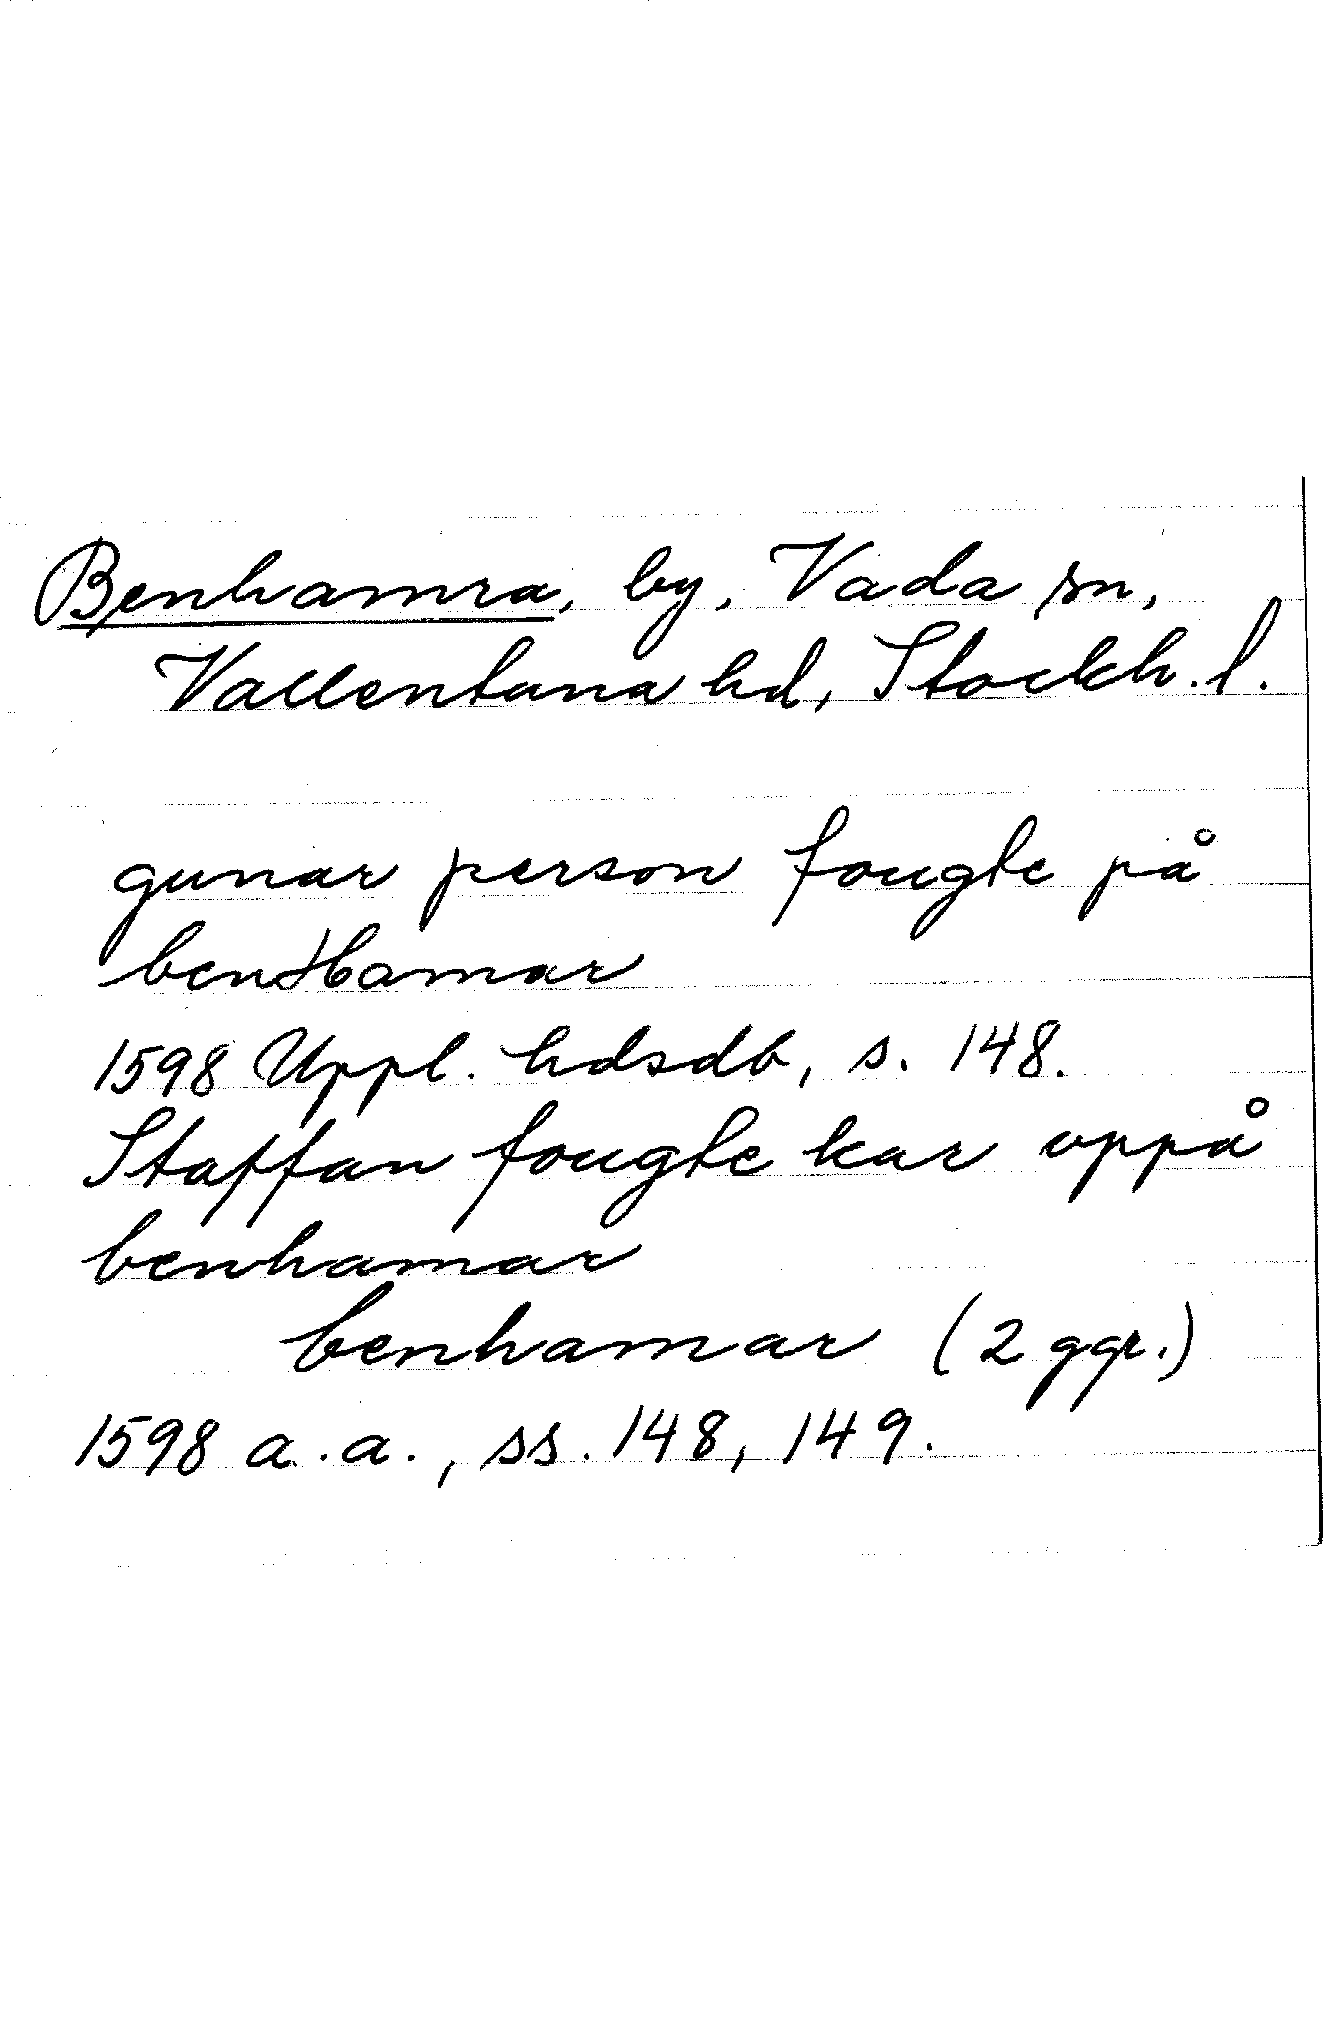 Benhamra, by, Vada sn,
Vallentuna hd, Stockh. l.
gunar person fougte på
benHamar
1598 Uppl. hdsdb, s. 148.
Staffan fougte kar oppå
benhamar
benhamar (2 ggr.)
1598 a.a., ss. 148, 149.